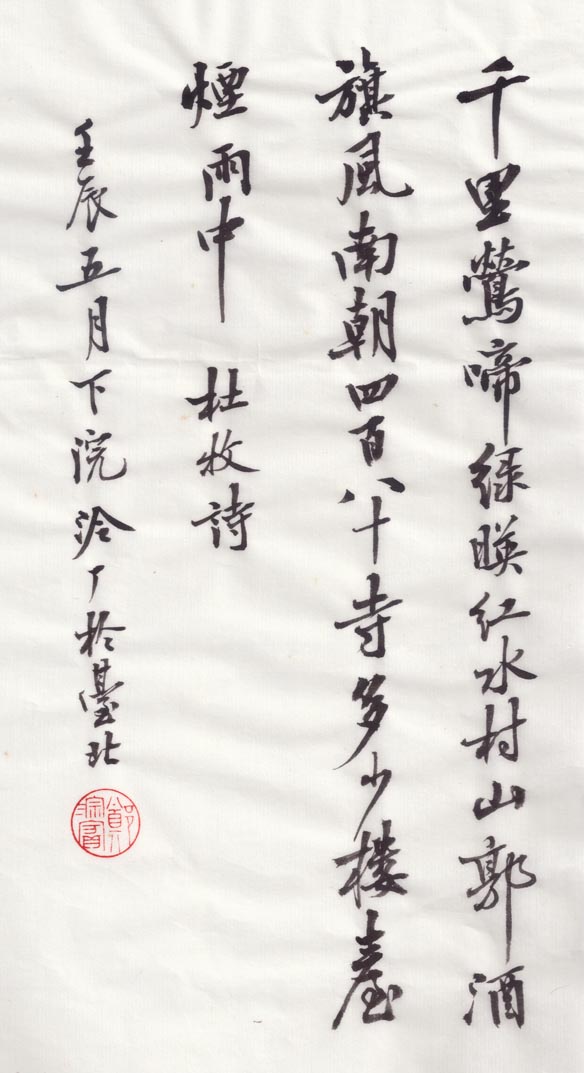 千里鶯啼綠暎紅水村山郭酒
旗風南朝四百八十寺多少樓臺
煙雨中 杜牧詩
壬辰五月下浣 於臺北